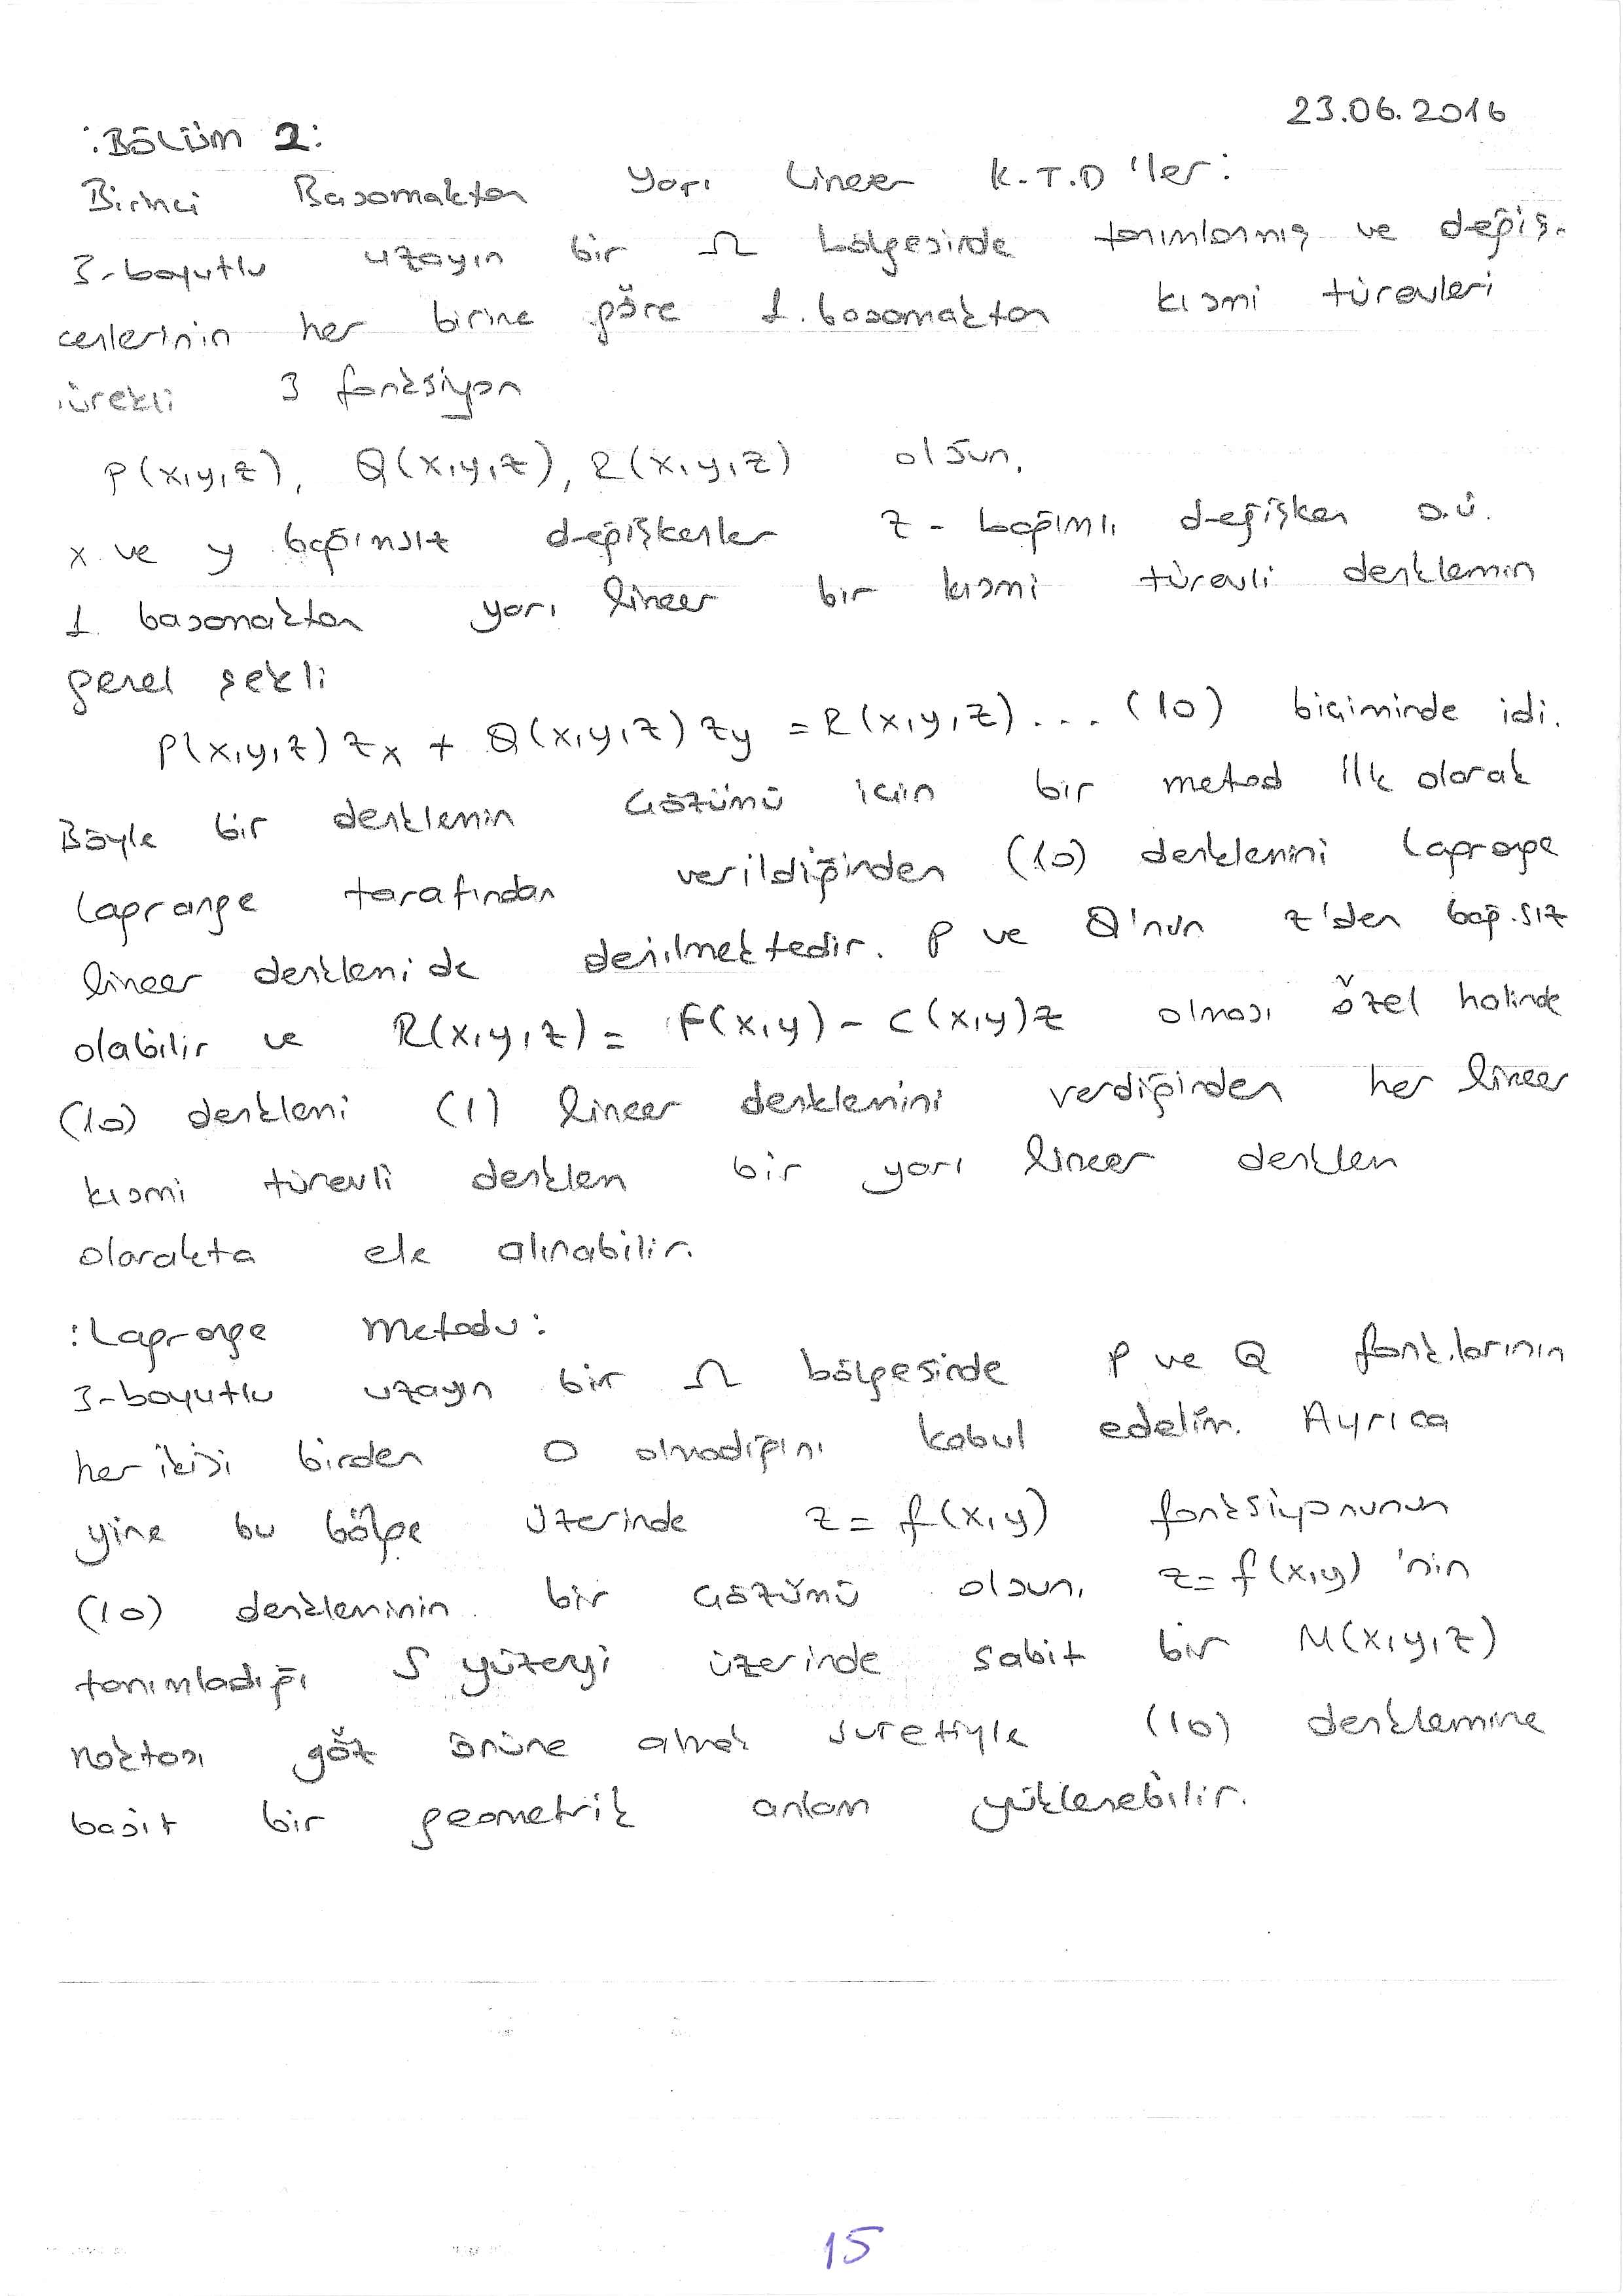 23.06.2016
:BÖLÜM 2:
Birinci Basamaktan Yarı Lineer K.T.D 'ler:
3-boyutlu uzayın bir Ω bölgesinde tanımlanmış ve değiş-
cenlerinin her birine göre 1. basamaktan kısmi türevleri
ürekli 3 fonksiyon
P(x,y,z), Q(x,y,z), R(x,y,z) olsun,
x ve y bağımsız değişkenler z - bağımlı değişken o.ü.
1. basamaktan yarı lineer bir kısmi türevli denklemin
genel şekli
P(x,y,z) zx + Q(x,y,z) zy = R(x,y,z) ... (10) biçiminde idi.
Böyle bir denklemin çözümü için bir metod ilk olarak
Lagrange tarafından verildiğinden (10) denklemini Lagrange
lineer denklemi de denilmektedir. P ve Q'nun z'den bağ.sız
olabilir ve R(x,y,z) = F(x,y) - C(x,y)z olması özel halinde
(10) denklemi (1) lineer denklemini verdiğinden her lineer
kısmi türevli denklem bir yarı lineer denklem
olarakta ele alınabilir.
:Lagrange Metodu:
3-boyutlu uzayın bir Ω bölgesinde P ve Q fonk.larının
her ikisi birden 0 olmadığını kabul edelim. Ayrıca
yine bu bölge üzerinde z = f(x,y) fonksiyonunun
(10) denkleminin bir çözümü olsun, z = f(x,y) 'nin
tanımladığı S yüzeyi üzerinde sabit bir M(x,y,z)
noktası göz önüne almak suretiyle (10) denklemine
basit bir geometrik anlam yüklenebilir.
15